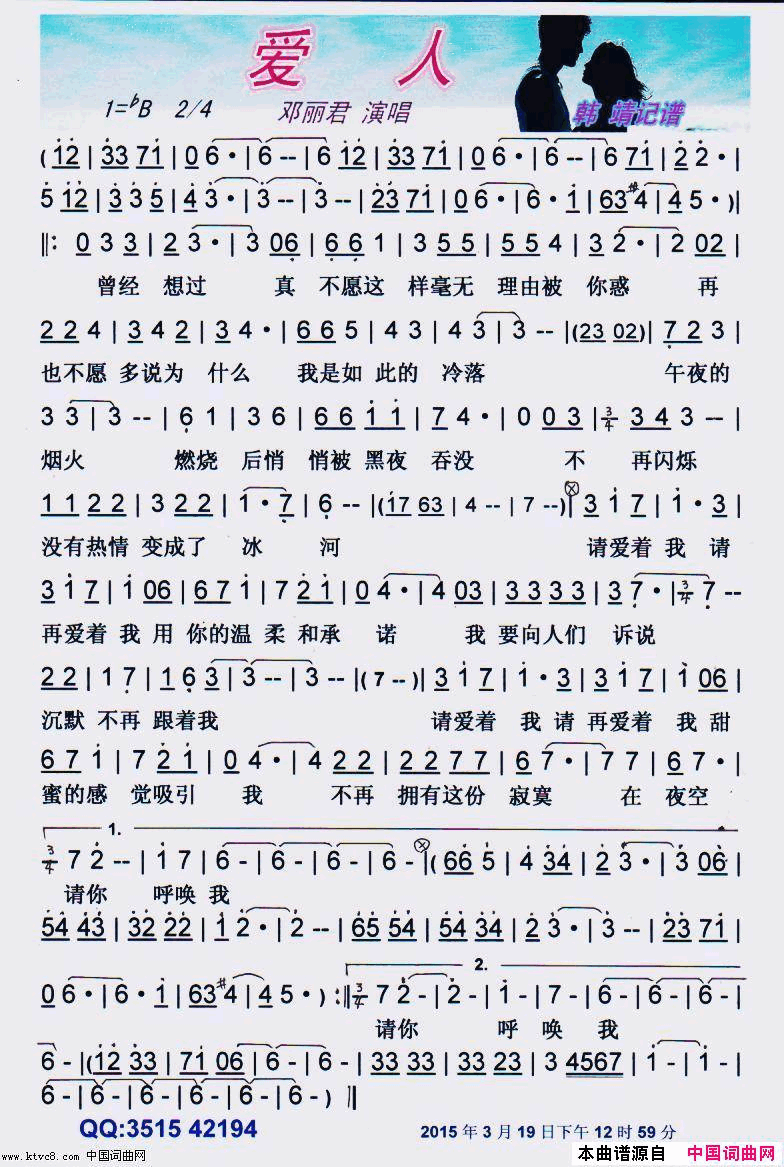 爱 人
1=♭B 2/4 邓丽君 演唱 韩 靖记谱
(12|33 71|0 6·|6 --|6 12|33 71|0 6·|6 --|6 71|2 2·|
5 12|3 3 5|4 3·|3 --|3 --|23 71|0 6·|6·1|63 #4|4 5·)|
‖: 0 3 3|2 3·|3 06|6 6 1|3 5 5|5 5 4|3 2·|2 02|
曾经 想过 真 不愿这 样毫无 理由被 你惑 再
2 2 4|3 4 2|3 4·|6 6 5|4 3|4 3|3 --|(23 02)|7 2 3|
也不愿 多说为 什么 我是如 此的 冷落 午夜的
3 3|3 --|6 1|3 6|6 6 1 1|7 4·|0 0 3|3/4 3 4 3 --|
烟火 燃烧 后悄 悄被 黑夜 吞没 不 再闪烁
1 1 2 2|3 2 2|1·7|6 --|(17 63|4 --|7 --)|3 1 7|1·3|
没有热情 变成了 冰 河 请爱着 我 请
3 1 7|1 06|6 7 1|7 2 1|0 4·|4 03|3 3 3 3|3 7·|3/4 7 --
再爱着 我 用 你的温 柔 和承 诺 我 要向人们 诉说
2 2|1 7|1 6 3|3 --|3 --|(7 --)|3 1 7|1·3|3 1 7|1 06|
沉默 不再 跟着我 请爱着 我 请 再爱着 我 甜
6 7 1|7 2 1|0 4·|4 2 2|2 2 7 7|6 7·|7 7|6 7·|
蜜的感 觉吸引 我 不再 拥有这份 寂寞 在 夜空
1.
3/4 7 2 --|1 7|6 -|6 -|6 -|6 -|(66 5|4 34|2 3·|3 06|
请你 呼唤 我
54 43|32 22|1 2·|2 --|65 54|5 34|2 3·|3 --|23 71|
0 6·|6·1|63 #4|4 5·):‖3/4 7 2 -|2 -|1 -|7 -|6 -|6 -|6 -|
2.
请你 呼 唤 我
6 -|(12 33|71 06|6 -|6 -|33 23|33 23|3 4567|1 -|1 -|
6 -|6 -|6 -|6 -|6 -)‖
QQ:3515 42194 2015 年 3 月 19 日下午 12 时 59 分
www.ktvc8.com 中国词曲网 本曲谱源自 中国词曲网